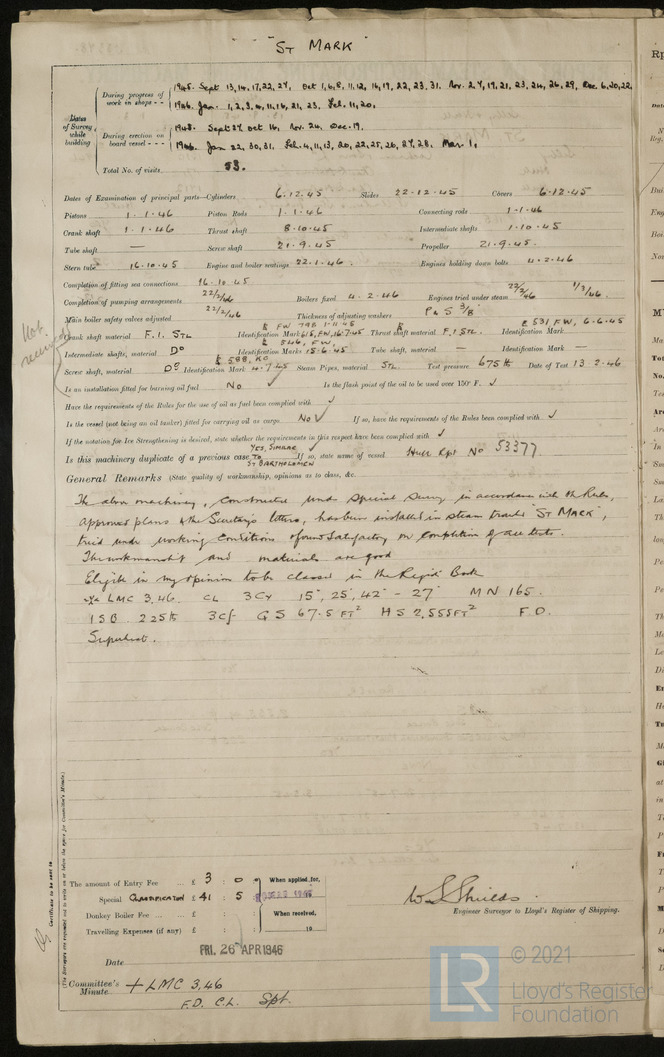 "ST MARK"
Dates of Survey while building
During progress of work in shops - -
1945. Sept 13,14,17,22,27, Oct 1,6,8,11,12,16,19,22,23,31. Nov. 2,7,19,21,23,26,26,29, Dec. 6,20,22,
1946. Jan. 1,2,3,4,11,16,21,23. Feb. 11,20.
During erection on board vessel - - -
1945. Sept 27. Oct 16. Nov. 24. Dec. 19.
1946. Jan 22,30,31. Feb. 4,11,13,20,22,25,26,27,28. Mar. 1.
Total No. of visits 53.
Dates of Examination of principal parts—Cylinders 6.12.45 Slides 22-12-45 Covers 6-12.45
Pistons 1-1-46 Piston Rods 1-1-46 Connecting rods 1-1-46
Crank shaft 1-1-46 Thrust shaft 8-10-45 Intermediate shafts 1-10-45
Tube shaft — Screw shaft 21.9.45 Propeller 21.9.45.
Stern tube 16.10.45 Engine and boiler seatings 22.1.46. Engines holding down bolts 4.2.46
Completion of fitting sea connections 16.10.45
Completion of pumping arrangements 22/2/46 Boilers fixed 4.2.46 Engines tried under steam 22/2/46 1/3/46.
Main boiler safety valves adjusted 22/2/46 Thickness of adjusting washers P & S 3/8
Crank shaft material F.I. STL Identification Mark Thrust shaft material F.I STL. Identification Mark £ 531 FW, 6-6.45
Intermediate shafts, material Do Identification Marks 15-6.45 Tube shaft, material — Identification Mark —
Screw shaft, material Do Identification Mark Steam Pipes, material STL Test pressure 675 lb Date of Test 13 2.46
Is an installation fitted for burning oil fuel No ✓ Is the flash point of the oil to be used over 150° F. ✓
Have the requirements of the Rules for the use of oil as fuel been complied with ✓
Is the vessel (not being an oil tanker) fitted for carrying oil as cargo No ✓ If so, have the requirements of the Rules been complied with ✓
If the notation for Ice Strengthening is desired, state whether the requirements in this respect have been complied with ✓
Is this machinery duplicate of a previous case YES, SIMILAR TO ST BARTHOLOMEW If so, state name of vessel Hull Rpt No 53377
General Remarks (State quality of workmanship, opinions as to class, &c.
The above machinery, constructed under special survey in accordance with the Rules,
approved plans & the Secretary's letters, has been installed in steam trawler "ST MARK",
tried under working conditions & found satisfactory on completion of all tests.
The workmanship and materials are good
Eligible in my opinion to be classed in the Register Book
LMC 3,46. CL 3Cy 15", 25", 42" - 27" MN 165.
1SB 225 lb 3cf GS 67.5 FT² HS 2,555 FT² F.D.
Superheat.
Certificate to be sent to
(The Surveyors are requested not to write on or below the space for Committee's Minute.)
The amount of Entry Fee ... £ 3 : 0 : When applied for,
Special CLASSIFICATION £ 41 : 5
Donkey Boiler Fee ... £ : : When received,
Travelling Expenses (if any) £ : : 19
W S Shields.
Engineer Surveyor to Lloyd's Register of Shipping.
Date FRI. 26 APR 1946
Committee's Minute + LMC 3,46
F.D. C.L. Spt.
LR
© 2021
Lloyd's Register
Foundation